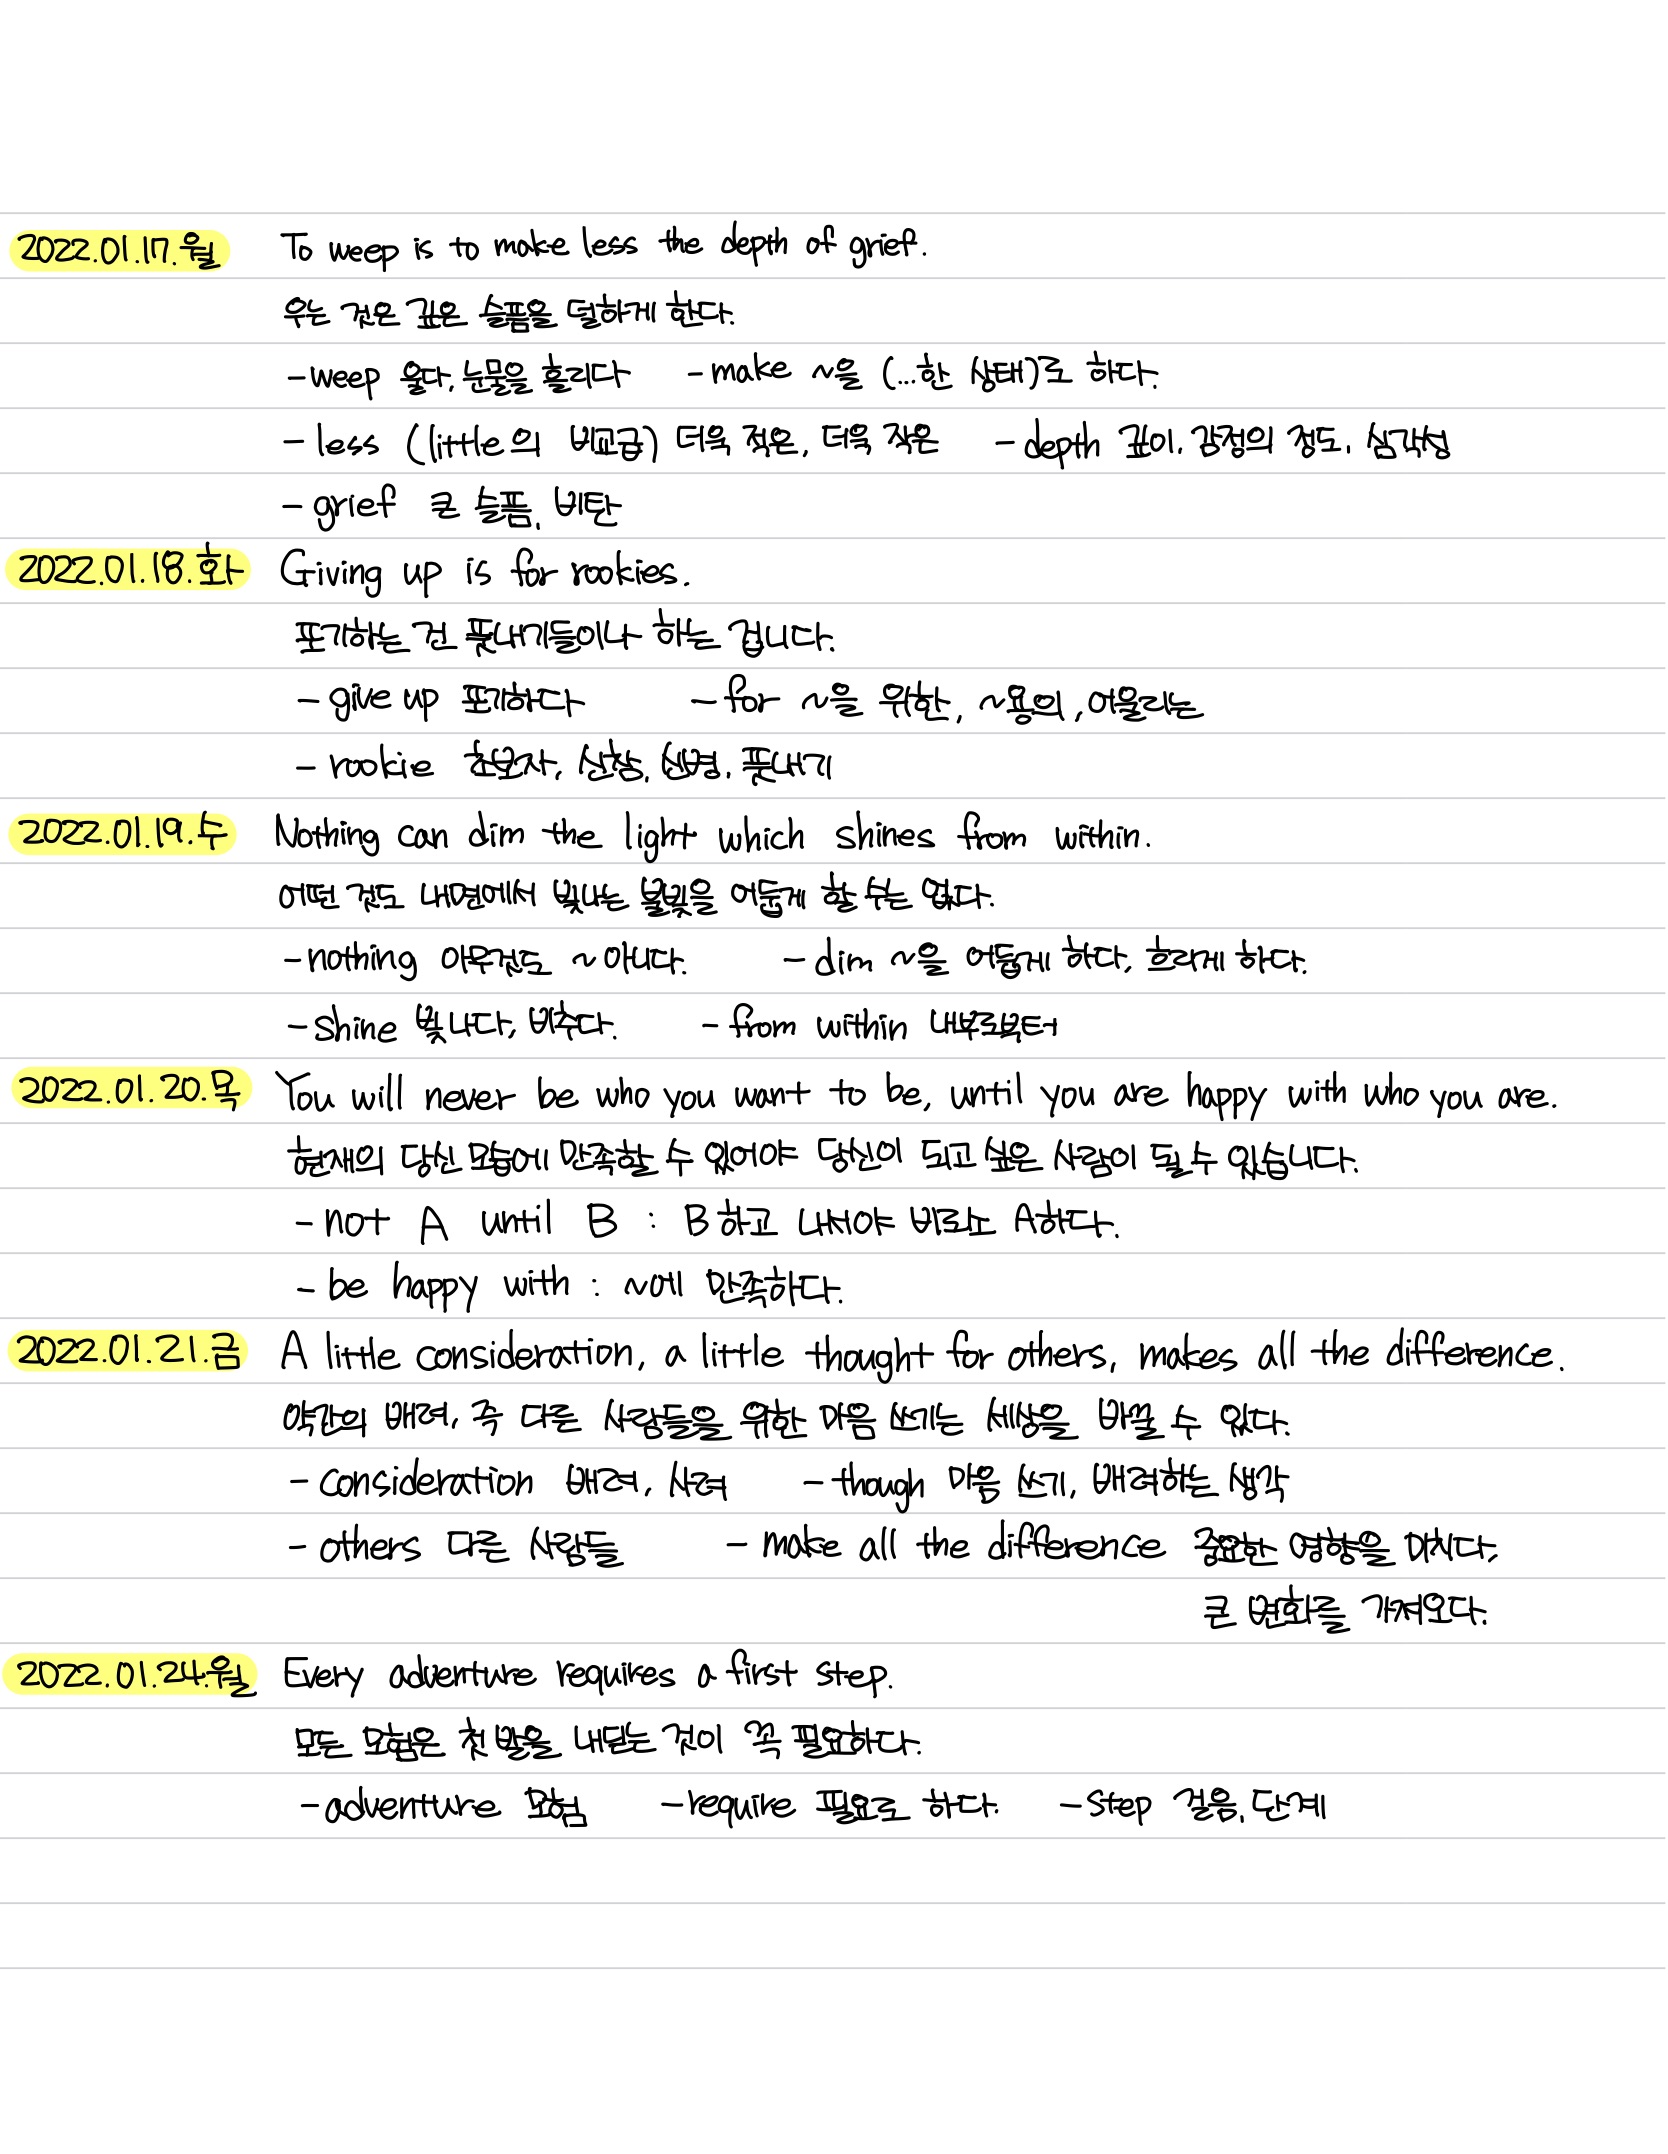 2022.01.17.월 To weep is to make less the depth of grief.
우는 것은 깊은 슬픔을 덜하게 한다.
- weep 울다, 눈물을 흘리다 - make ~을 (...한 상태)로 하다.
- less (little의 비교급) 더욱 적은, 더욱 작은 - depth 깊이, 감정의 정도, 심각성
- grief 큰 슬픔, 비탄
2022.01.18.화 Giving up is for rookies.
포기하는 건 풋내기들이나 하는 겁니다.
- give up 포기하다 - for ~을 위한, ~용의, 어울리는
- rookie 초보자, 신참, 신병, 풋내기
2022.01.19.수 Nothing can dim the light which shines from within.
어떤 것도 내면에서 빛나는 불빛을 어둡게 할 수는 없다.
- nothing 아무것도 ~아니다. - dim ~을 어둡게 하다, 흐리게 하다.
- shine 빛나다, 비추다. - from within 내부로부터
2022.01.20.목 You will never be who you want to be, until you are happy with who you are.
현재의 당신 모습에 만족할 수 있어야 당신이 되고 싶은 사람이 될 수 있습니다.
- not A until B : B하고 나서야 비로소 A하다.
- be happy with : ~에 만족하다.
2022.01.21.금 A little consideration, a little thought for others, makes all the difference.
약간의 배려, 즉 다른 사람들을 위한 마음 쓰기는 세상을 바꿀 수 있다.
- consideration 배려, 사려 - though 마음 쓰기, 배려하는 생각
- others 다른 사람들 - make all the difference 중요한 영향을 미치다,
큰 변화를 가져오다.
2022.01.24.월 Every adventure requires a first step.
모든 모험은 첫 발을 내딛는 것이 꼭 필요하다.
- adventure 모험 - require 필요로 하다. - step 걸음, 단계